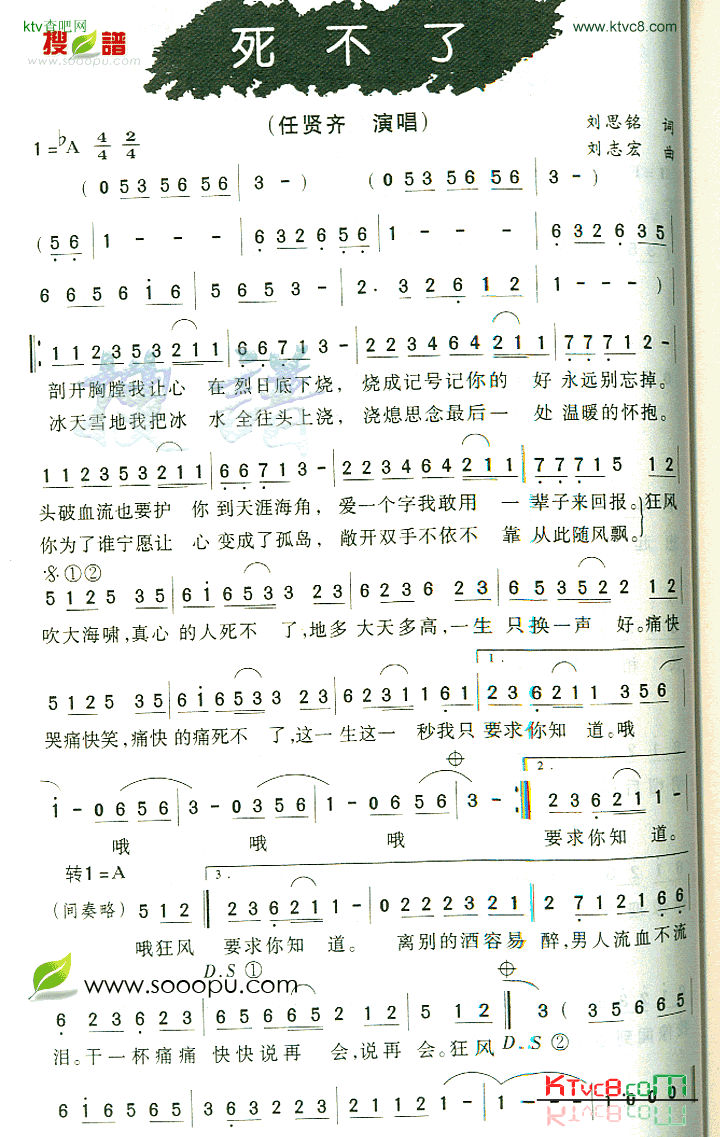 ktv查吧网
搜谱
www.sooopu.com
www.ktvc8.com
死不了
(任贤齐 演唱)
刘思铭 词
刘志宏 曲
1=♭A 4/4 2/4
(0 53 56 56 | 3 - ) (0 53 56 56 | 3 - )
(56 | 1 - - - | 6 3 2 6 56 | 1 - - - | 6 3 2 6 35
6 6 5 6 i 6 | 5 6 5 3 - | 2· 3 2 6 1 2 | 1 - - - )
1 1 2 3 5 3 2 1 1 | 6 6 7 1 3 - | 2 2 3 4 6 4 2 1 1 | 7 7 7 1 2 -
剖开胸膛我让心 在 烈日底下烧, 烧成记号记你的 好 永远别忘掉。
冰天雪地我把冰 水 全往头上浇, 浇熄思念最后一 处 温暖的怀抱。
1 1 2 3 5 3 2 1 1 | 6 6 7 1 3 - | 2 2 3 4 6 4 2 1 1 | 7 7 7 1 5 1 2
头破血流也要护 你 到天涯海角, 爱一个字我敢用 一 辈子来回报。狂风
你为了谁宁愿让 心 变成了孤岛, 敞开双手不依不 靠 从此随风飘。
①②
5 1 2 5 3 5 | 6 i 6 5 3 3 2 3 | 6 2 2 3 2 3 5 | 6 5 3 5 2 2 1 2
吹大海啸,真心 的人死不 了,地多 大天多高,一生 只换一声 好。痛快
5 1 2 5 3 5 | 6 i 6 5 3 3 2 3 | 6 2 3 1 1 6 1 | 2 3 6 2 1 1 3 5 6
1.
哭痛快笑,痛快 的痛死不 了,这一 生这一 秒我只 要求你知 道。哦
i - 0 6 5 6 | 3 - 0 3 5 6 | 1 - 0 6 5 6 | 3 - - - | 2 3 6 2 1 1 -
2.
哦 哦 哦 要求你知 道。
转1=A
3.
(间奏略) 5 1 2 | 2 3 6 2 1 1 - | 0 2 2 2 3 2 1 | 2 7 1 2 1 6 6
哦狂风 要求你知 道。 离别的酒容易 醉,男人流血不流
D.S ①
www.sooopu.com
6 2 3 6 2 3 | 6 5 6 5 5 3 2 | 2 5 1 2 | 3 ( 3 5 6 6 5
泪。干一杯痛痛 快快说再 会,说再 会。狂风
D.S ②
KTvc8.com
6 i 6 5 6 5 | 3 6 3 2 2 3 | 2 1 1 2 1 | 1 - - - | 1 0 0 0